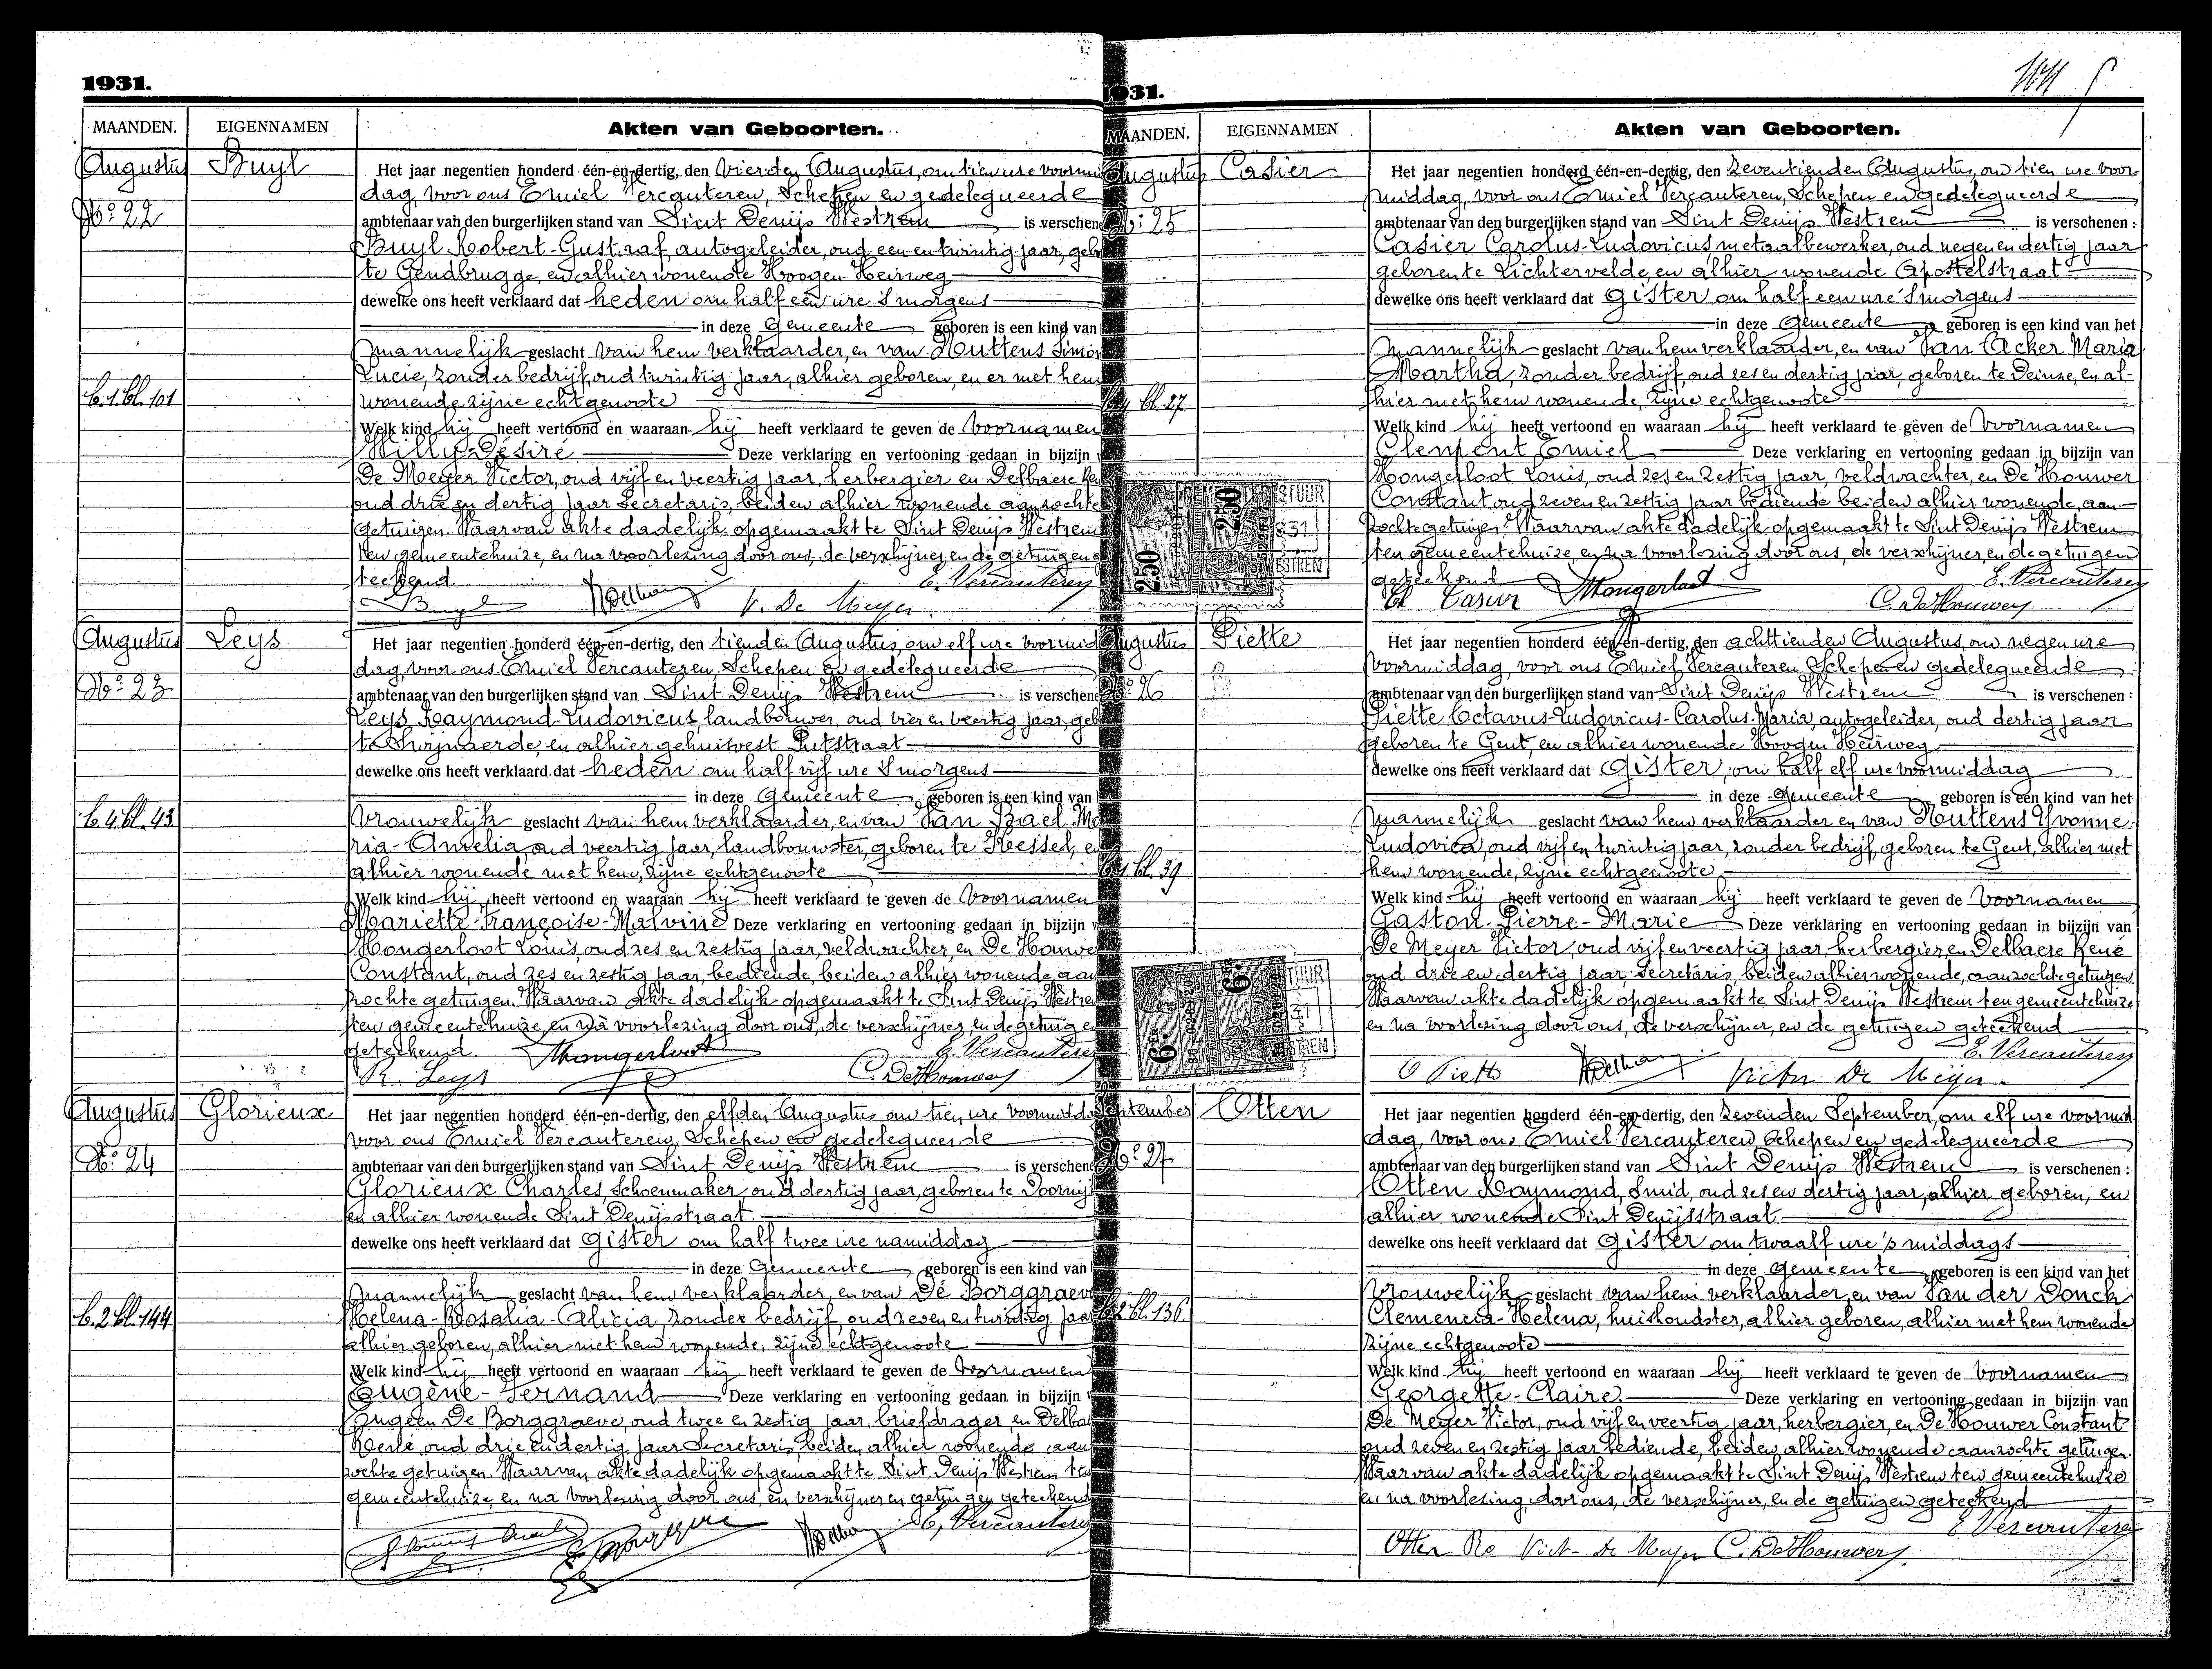 1931.
MAANDEN. EIGENNAMEN Akten van Geboorten.
Augustus Buyl
No: 22
b.1.bl.101
Het jaar negentien honderd één-en-dertig, den vierden Augustus, om tien ure voormid
dag, voor ons Emiel Vercauteren, Schepen en gedelegueerde
ambtenaar van den burgerlijken stand van Sint Denijs Westrem is verschene
Buyl Robert-Gustaaf, autogeleider, oud een en twintig jaar, geb
te Gendbrugge, en alhier wonende Hoogen Heirweg
dewelke ons heeft verklaard dat heden om half een ure 's morgens
in deze Gemeente geboren is een kind van
mannelijk geslacht van hem verklaarder, en van Huttens Simon
Lucie, zonder bedrijf, oud twintig jaar, alhier geboren, en er met hem
wonende zijne echtgenoote
Welk kind hij heeft vertoond en waaraan hij heeft verklaard te geven de voornamen
Willy-Désiré Deze verklaring en vertooning gedaan in bijzijn v
De Meyer Victor, oud vijf en veertig jaar, herbergier en Delbaere Re
oud drie en dertig jaar Secretaris, beiden alhier wonende aanzochte
getuigen. Waarvan akte dadelijk opgemaakt te Sint Denijs Westrem
ten gemeentehuize, en na voorlezing door ons, de verschijner, en de getuigen g
teekend.
E. Vercauteren
Buyl V. De Meyer
Augustus Leys
No: 23
b.4.bl.43
Het jaar negentien honderd één-en-dertig, den tienden Augustus, om elf ure voormid
dag, voor ons Emiel Vercauteren, Schepen en gedelegueerde
ambtenaar van den burgerlijken stand van Sint Denijs Westrem is verschene
Leys Raymond-Ludovicus, landbouwer, oud vier en veertig jaar, geb
te Swijnaerde, en alhier gehuisvest Putstraat
dewelke ons heeft verklaard dat heden om half vijf ure 's morgens
in deze Gemeente geboren is een kind van
vrouwelijk geslacht van hem verklaarder, en van Van Bael Ma
ria-Amelia, oud veertig jaar, landbouwster, geboren te Kessel, en
alhier wonende met hem, zijne echtgenoote
Welk kind hij heeft vertoond en waaraan hij heeft verklaard te geven de voornamen
Mariette-Françoise-Malvine Deze verklaring en vertooning gedaan in bijzijn v
Hongerloot Louis, oud zes en zestig jaar, veldwachter, en De Houwe
Constant, oud zes en zestig jaar, bediende, beiden alhier wonende, aan
zochte getuigen. Waarvan akte dadelijk opgemaakt te Sint Denijs Westrem
ten gemeentehuize, en na voorlezing door ons, de verschijner, en de getuigen
geteekend. Hongerloot E. Vercauteren
R. Leys C. De Houwer
Augustus Glorieux
No: 24
b.2.bl.144
Het jaar negentien honderd één-en-dertig, den elfden Augustus om tien ure voormidda
voor ons Emiel Vercauteren, Schepen en gedelegueerde
ambtenaar van den burgerlijken stand van Sint Denijs Westrem is verschene
Glorieux Charles, Schoenmaker, oud dertig jaar, geboren te Doornij
en alhier wonende Sint Denijsstraat
dewelke ons heeft verklaard dat gister om half twee ure namiddag
in deze Gemeente geboren is een kind van
mannelijk geslacht van hem verklaarder, en van De Borggraeve
Helena-Rosalia-Alicia, zonder bedrijf, oud zeven en twintig jaar
alhier geboren, alhier met hem wonende, zijne echtgenoote
Welk kind hij heeft vertoond en waaraan hij heeft verklaard te geven de voornamen
Eugène-Fernand Deze verklaring en vertooning gedaan in bijzijn v
Eugeen De Borggraeve, oud twee en zestig jaar, briefdrager, en Delba
René, oud drie en dertig jaar Secretaris, beiden alhier wonende aan
zochte getuigen. Waarvan akte dadelijk opgemaakt te Sint Denijs Westrem ten
gemeentehuize, en na voorlezing door ons, en verschijner en getuigen geteekend
E. Vercauteren
1931.
MAANDEN. EIGENNAMEN Akten van Geboorten.
Augustus Casier
No: 25
bl.27
Het jaar negentien honderd één-en-dertig, den zeventienden Augustus, om tien ure voor-
middag, voor ons Emiel Vercauteren, Schepen en gedelegueerde
ambtenaar van den burgerlijken stand van Sint Denijs Westrem is verschenen:
Casier Carolus-Ludovicus metaalbewerker, oud negen en dertig jaar
geboren te Lichtervelde, en alhier wonende Apostelstraat
dewelke ons heeft verklaard dat gister om half een ure 's morgens
in deze Gemeente geboren is een kind van het
mannelijk geslacht van hem verklaarder, en van Van Acker Maria
Martha, zonder bedrijf, oud zes en dertig jaar, geboren te Deinze, en al-
hier met hem wonende, zijne echtgenoote
Welk kind hij heeft vertoond en waaraan hij heeft verklaard te geven de voornamen
Clement Emiel Deze verklaring en vertooning gedaan in bijzijn van
Hongerloot Louis, oud zes en zestig jaar, veldwachter, en De Houwer
Constant oud zeven en zestig jaar bediende beiden alhier wonende, aan-
zochte getuigen. Waarvan akte dadelijk opgemaakt te Sint Denijs Westrem
ten gemeentehuize, en na voorlezing door ons, de verschijner, en de getuigen
geteekend. E. Vercauteren
Casier Hongerloot C. De Houwer
2.50 2.50
STUUR
1931
WESTREM
Augustus Piette
No: 26
b.1.bl.39
Het jaar negentien honderd één-en-dertig, den achttienden Augustus, om negen ure
voormiddag, voor ons Emiel Vercauteren Schepen en gedelegueerde
ambtenaar van den burgerlijken stand van Sint Denijs Westrem is verschenen:
Piette Octavus-Ludovicus-Carolus-Maria, autogeleider, oud dertig jaar
geboren te Gent, en alhier wonende Hoogen Heirweg
dewelke ons heeft verklaard dat gister, om half elf ure voormiddag
in deze Gemeente geboren is een kind van het
mannelijk geslacht van hem verklaarder en van Huttens Yvonne-
Ludovica, oud vijf en twintig jaar, zonder bedrijf, geboren te Gent, alhier met
hem wonende, zijne echtgenoote
Welk kind hij heeft vertoond en waaraan hij heeft verklaard te geven de voornamen
Gaston-Pierre-Marie Deze verklaring en vertooning gedaan in bijzijn van
De Meyer Victor, oud vijf en veertig jaar, herbergier, en Delbaere René
oud drie en dertig jaar Secretaris, beiden alhier wonende, aanzochte getuigen
Waarvan akte dadelijk opgemaakt te Sint Denijs Westrem ten gemeentehuize
en na voorlezing door ons, de verschijner, en de getuigen geteekend
E. Vercauteren
O Piette Victor De Meyer
6.FR 6.FR
TUUR
WESTREM
September Otten
No: 27
b.2 bl.136
Het jaar negentien honderd één-en-dertig, den zevenden September, om elf ure voormid
dag, voor ons Emiel Vercauteren Schepen en gedelegueerde
ambtenaar van den burgerlijken stand van Sint Denijs Westrem is verschenen:
Otten Raymond, Smid, oud zes en dertig jaar, alhier geboren, en
alhier wonende Sint Denijsstraat
dewelke ons heeft verklaard dat gister om twaalf ure 's middags
in deze gemeente geboren is een kind van het
vrouwelijk geslacht van hem verklaarder, en van Van der Donck
Clemencia-Helena, huishoudster, alhier geboren, alhier met hem wonende
zijne echtgenoote
Welk kind hij heeft vertoond en waaraan hij heeft verklaard te geven de voornamen
Georgette-Claire Deze verklaring en vertooning gedaan in bijzijn van
De Meyer Victor, oud vijf en veertig jaar, herbergier, en De Houwer Constant
oud zeven en zestig jaar bediende, beiden alhier wonende aanzochte getuigen.
Waarvan akte dadelijk opgemaakt te Sint Denijs Westrem ten gemeentehuize
en na voorlezing, door ons, de verschijner, en de getuigen geteekend
E. Vercauteren
Otten Ra Vict- De Meyer C. De Houwer